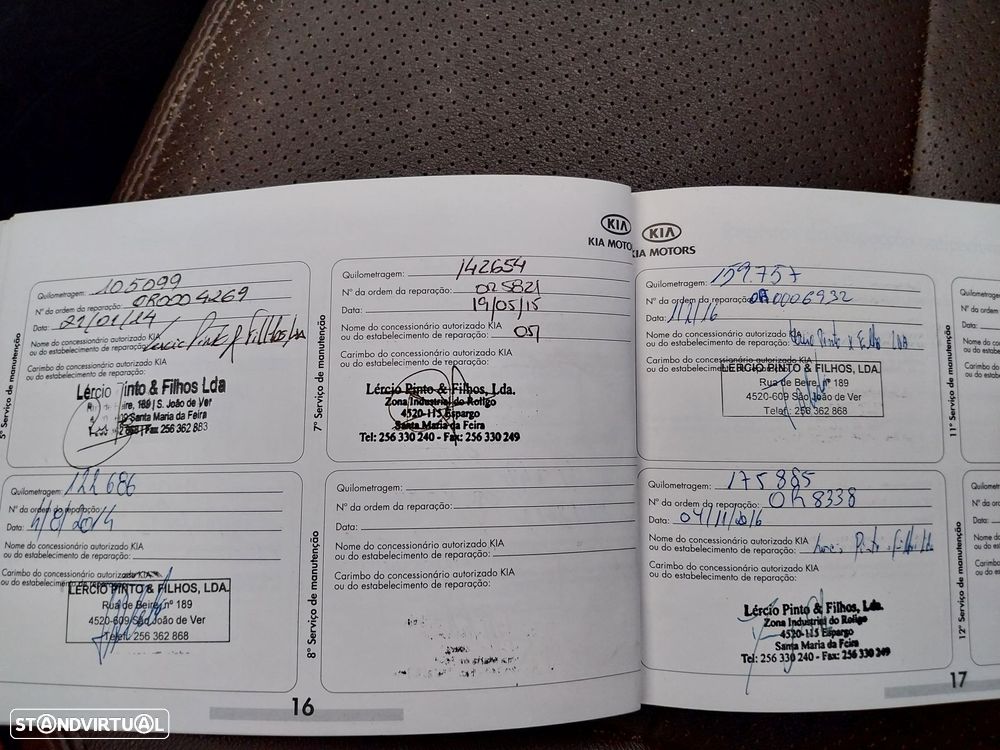 KIA
KIA MOTO
KIA
KIA MOTORS
5º Serviço de manutenção
Quilometragem: 105099
Nº da ordem da reparação: OR0004269
Data: 21/01/14
Nome do concessionário autorizado KIA
ou do estabelecimento de reparação: Lercio Pinto & Filhos Lda
Carimbo do concessionário autorizado KIA
ou do estabelecimento de reparação:
Lércio Pinto & Filhos Lda
189 | S. João de Ver
Santa Maria da Feira
Fax 256 362 883
Quilometragem: 122 686
Nº da ordem da reparação:
Data: 4/8/2014
Nome do concessionário autorizado KIA
ou do estabelecimento de reparação:
Carimbo do concessionário autorizado KIA
ou do estabelecimento de reparação:
LÉRCIO PINTO & FILHOS, LDA.
Rua de Beire, nº 189
4520-609 São João de Ver
Telef. 256 362 868
7º Serviço de manutenção
Quilometragem: 142654
Nº da ordem da reparação: 025821
Data: 19/05/15
Nome do concessionário autorizado KIA
ou do estabelecimento de reparação:
Carimbo do concessionário autorizado KIA
ou do estabelecimento de reparação:
Lércio Pinto & Filhos, Lda.
Zona Industrial do Roligo
4520-115 Espargo
Santa Maria da Feira
Tel: 256 330 240 - Fax: 256 330 249
8º Serviço de manutenção
Quilometragem:
Nº da ordem da reparação:
Data:
Nome do concessionário autorizado KIA
ou do estabelecimento de reparação:
Carimbo do concessionário autorizado KIA
ou do estabelecimento de reparação:
16
Quilometragem: 159.757
Nº da ordem da reparação: OR0006932
Data:
Nome do concessionário autorizado KIA
ou do estabelecimento de reparação: Pinto & LDA
Carimbo do concessionário autorizado KIA
ou do estabelecimento de reparação:
LÉRCIO PINTO & FILHOS, LDA.
Rua de Beire, nº 189
4520-609 São João de Ver
Telef. 256 362 868
11º Serviço de manutenção
Quilometragem: 175885
Nº da ordem da reparação: OR 8338
Data: 04/11/2016
Nome do concessionário autorizado KIA
ou do estabelecimento de reparação: Pinto & Filhos Lda
Carimbo do concessionário autorizado KIA
ou do estabelecimento de reparação:
Lércio Pinto & Filhos, Lda.
Zona Industrial do Roligo
4520-115 Espargo
Santa Maria da Feira
Tel: 256 330 240 - Fax: 256 330 249
12º Serviço de manutenção
17
Quilom
Nº da o
Data:
Nome
ou do e
Carimb
ou do
STANDVIRTUAL